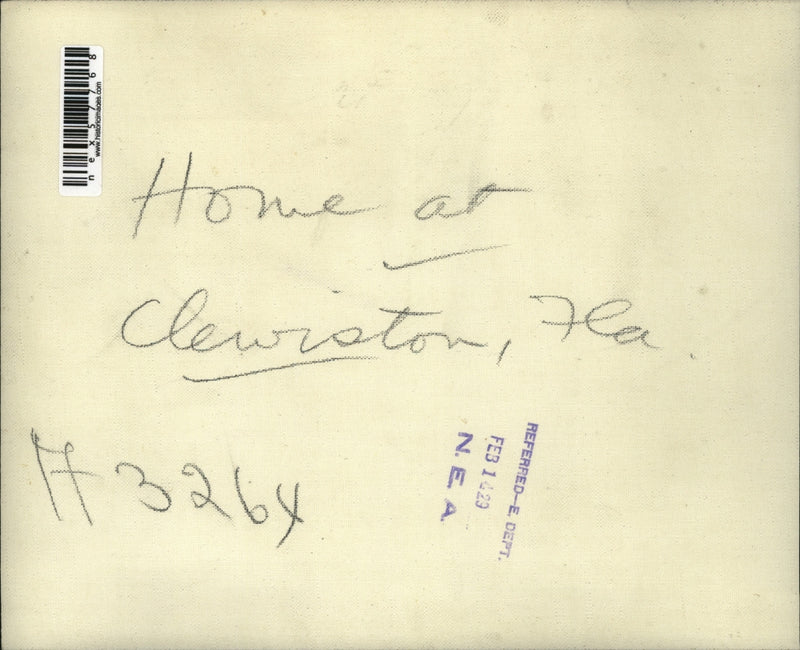 nex57768
www.historicimages.com
Home at
Clewiston, Fla.
H 3264
REFERRED—E. DEPT.
N. E. A.